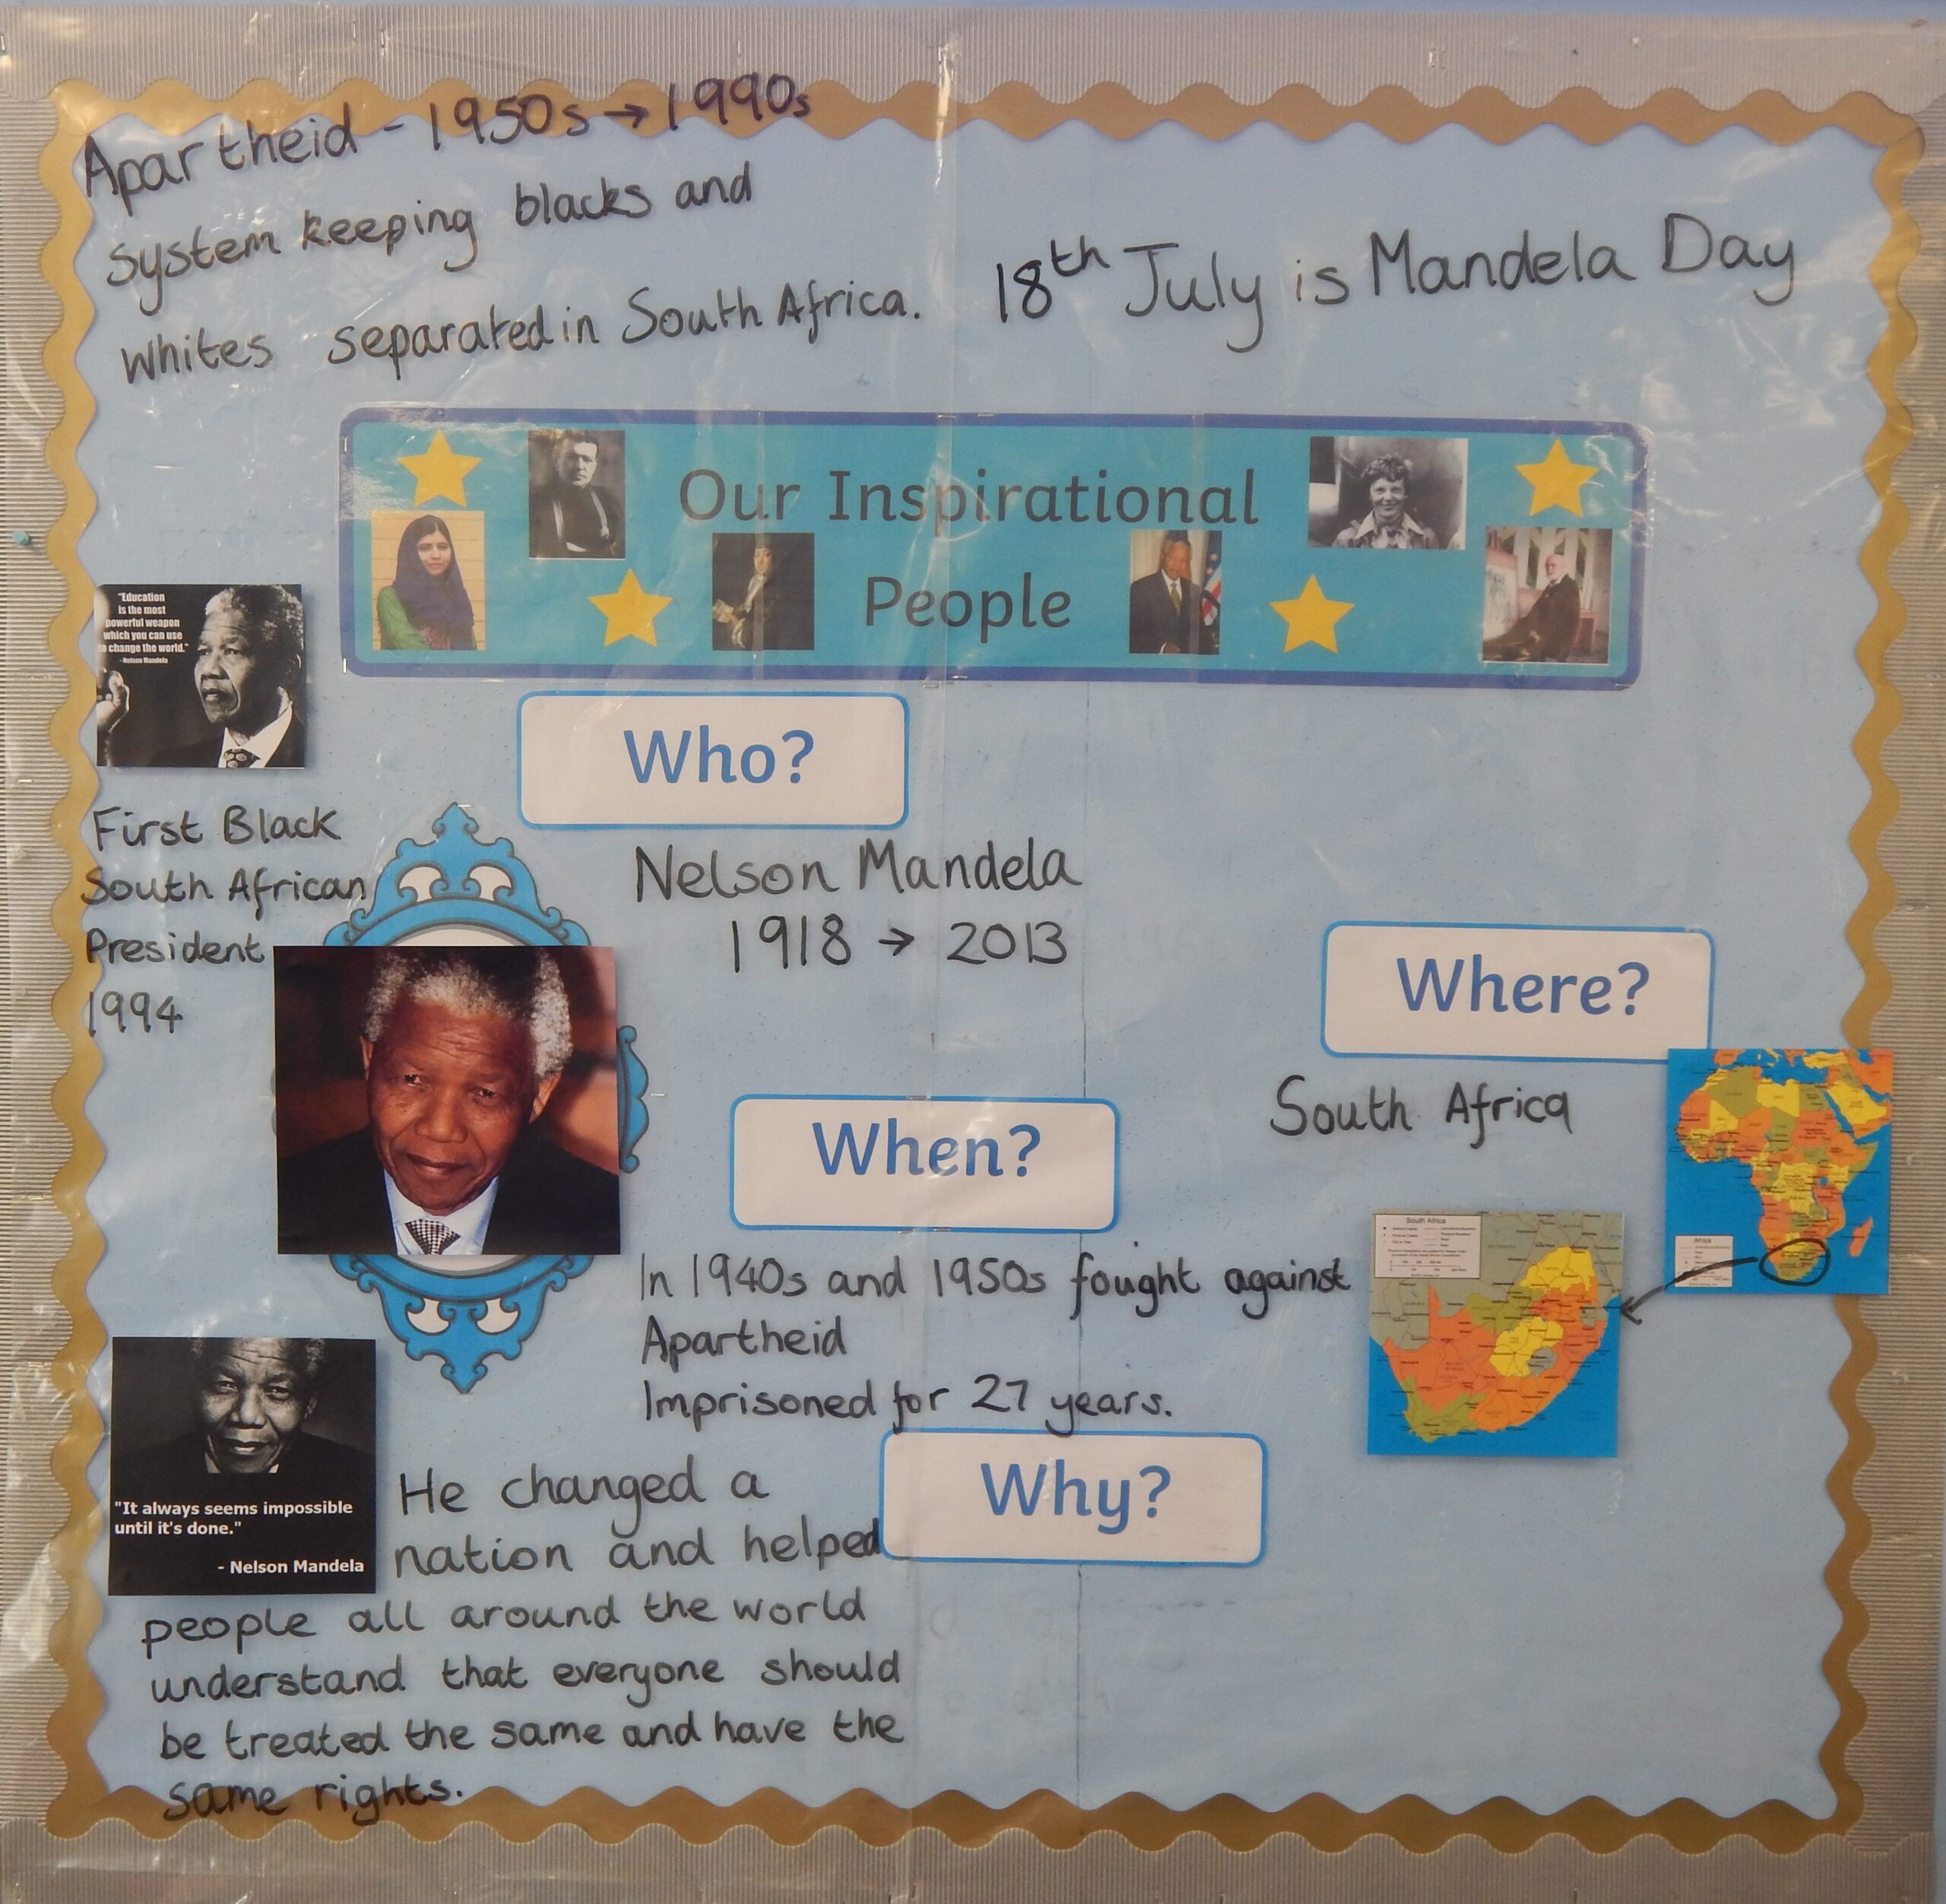 Apartheid - 1950s → 1990s
system keeping blacks and
whites separated in South Africa.
18th July is Mandela Day
Our Inspirational
People
"Education
is the most
powerful weapon
which you can use
to change the world."
-Nelson Mandela
Who?
First Black
South African
President
1994
Nelson Mandela
1918 → 2013
Where?
South Africa
When?
In 1940s and 1950s fought against
Apartheid
Imprisoned for 27 years.
South Africa
Africa
Why?
"It always seems impossible
until it's done."
- Nelson Mandela
He changed a
nation and helped
people all around the world
understand that everyone should
be treated the same and have the
same rights.